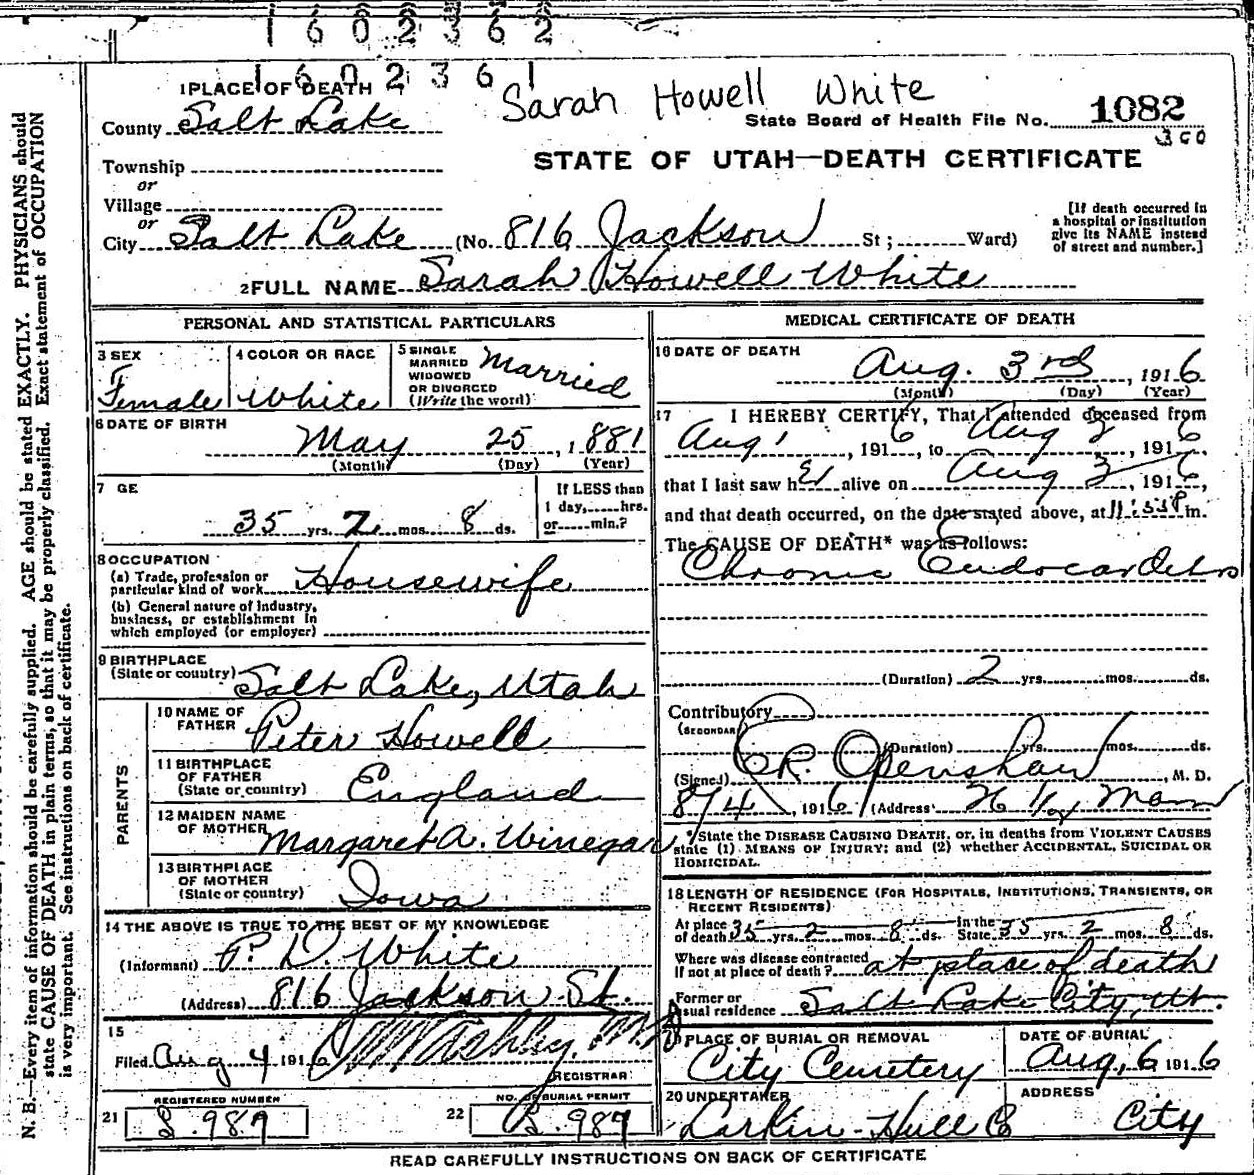 1602362
1602361
1 PLACE OF DEATH
Sarah Howell White
County Salt Lake
State Board of Health File No. 1082
300
Township
STATE OF UTAH—DEATH CERTIFICATE
or
Village
or
City Salt Lake (No. 816 Jackson St; Ward)
[If death occurred in a hospital or institution give its NAME instead of street and number.]
2 FULL NAME Sarah Howell White
PERSONAL AND STATISTICAL PARTICULARS
3 SEX
Female
4 COLOR OR RACE
White
5 SINGLE
MARRIED
WIDOWED
OR DIVORCED
(Write the word)
Married
6 DATE OF BIRTH
May 25, 1881
(Month) (Day) (Year)
7 GE
35 yrs. 2 mos. 8 ds.
If LESS than
1 day,......hrs.
or......min.?
8 OCCUPATION
(a) Trade, profession or
particular kind of work Housewife
(b) General nature of Industry,
business, or establishment in
which employed (or employer)
9 BIRTHPLACE
(State or country) Salt Lake, Utah
PARENTS
10 NAME OF
FATHER Peter Howell
11 BIRTHPLACE
OF FATHER
(State or country) England
12 MAIDEN NAME
OF MOTHER Margaret A. Winegar
13 BIRTHPLACE
OF MOTHER
(State or country) Iowa
14 THE ABOVE IS TRUE TO THE BEST OF MY KNOWLEDGE
(Informant) P. D. White
(Address) 816 Jackson St.
15
Filed Aug 4 1916 Ashby, M.D.
REGISTRAR
REGISTERED NUMBER
21 S. 987
NO. OF BURIAL PERMIT
22 B. 987
MEDICAL CERTIFICATE OF DEATH
16 DATE OF DEATH
Aug. 3rd, 1916
(Month) (Day) (Year)
17 I HEREBY CERTIFY, That I attended deceased from
Aug 1, 1916, to Aug 3, 1916,
that I last saw her alive on Aug 3, 1916,
and that death occurred, on the date stated above, at m.
The CAUSE OF DEATH* was as follows:
Chronic Endocarditis
(Duration) 2 yrs. mos. ds.
Contributory
(SECONDARY)
(Duration) yrs. mos. ds.
(Signed) R. Openshaw, M. D.
8/4, 1916 (Address)
*State the DISEASE CAUSING DEATH, or, in deaths from VIOLENT CAUSES
state (1) MEANS OF INJURY; and (2) whether ACCIDENTAL, SUICIDAL OR
HOMICIDAL.
18 LENGTH OF RESIDENCE (FOR HOSPITALS, INSTITUTIONS, TRANSIENTS, OR
RECENT RESIDENTS)
At place
of death 35 yrs. 2 mos. 8 ds. In the
State 35 yrs. 2 mos. 8 ds.
Where was disease contracted
if not at place of death? at place of death
Former or
usual residence Salt Lake City, Ut.
PLACE OF BURIAL OR REMOVAL
City Cemetery
DATE OF BURIAL
Aug, 6 1916
20 UNDERTAKER
Larkin-Hull Co
ADDRESS
City
READ CAREFULLY INSTRUCTIONS ON BACK OF CERTIFICATE
N. B.—Every item of information should be carefully supplied. AGE should be stated EXACTLY. PHYSICIANS should
state CAUSE OF DEATH in plain terms, so that it may be properly classified. Exact statement of OCCUPATION
is very important. See instructions on back of certificate.